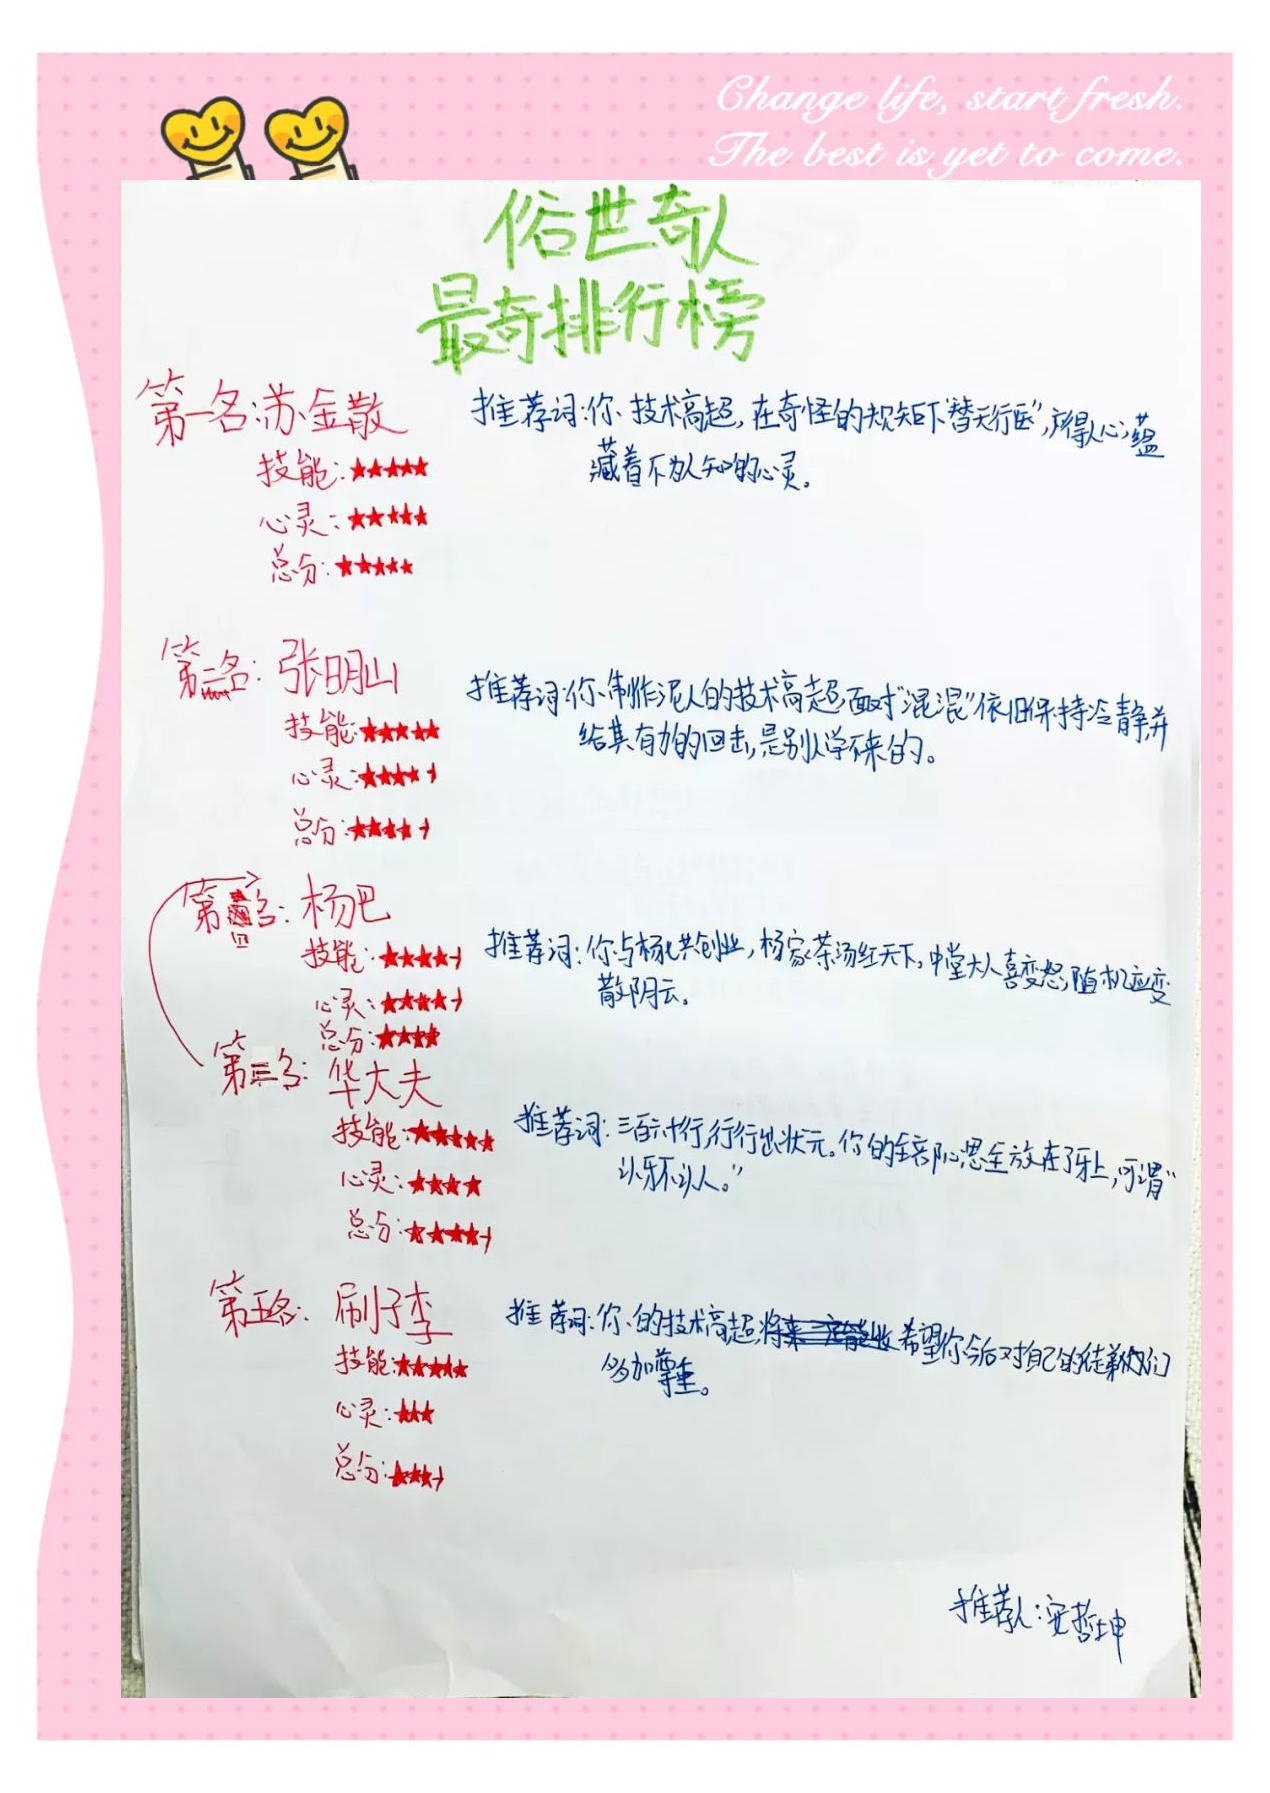 Change life, start fresh.
The best is yet to come.
俗世奇人
最奇排行榜
第一名:苏金散
推荐词:你技术高超,在奇怪的规矩下“替天行医”,所得人心,蕴
藏着不为人知的心灵。
技能:★★★★★
心灵:★★★★★
总分:★★★★★
第二名:张明山
推荐词:你制作泥人的技术高超,面对“混混”依旧保持冷静,并
给其有力的回击,是别人学不来的。
技能:★★★★★
心灵:★★★★
总分:★★★★
第四名:杨巴
推荐词:你与杨七共创业,杨家茶汤红天下,中堂大人喜变怒,随机应变
散阴云。
技能:★★★★
心灵:★★★★
总分:★★★★
第三名:华大夫
推荐词:三百六十行,行行出状元。你的全部心思全放在了牙上,可谓“
认牙不认人。”
技能:★★★★★
心灵:★★★★
总分:★★★★
第五名:刷子李
推荐词:你的技术高超,希望你今后对自己的徒弟们
多加尊重。
技能:★★★★★
心灵:★★★
总分:★★★
推荐人:安哲坤